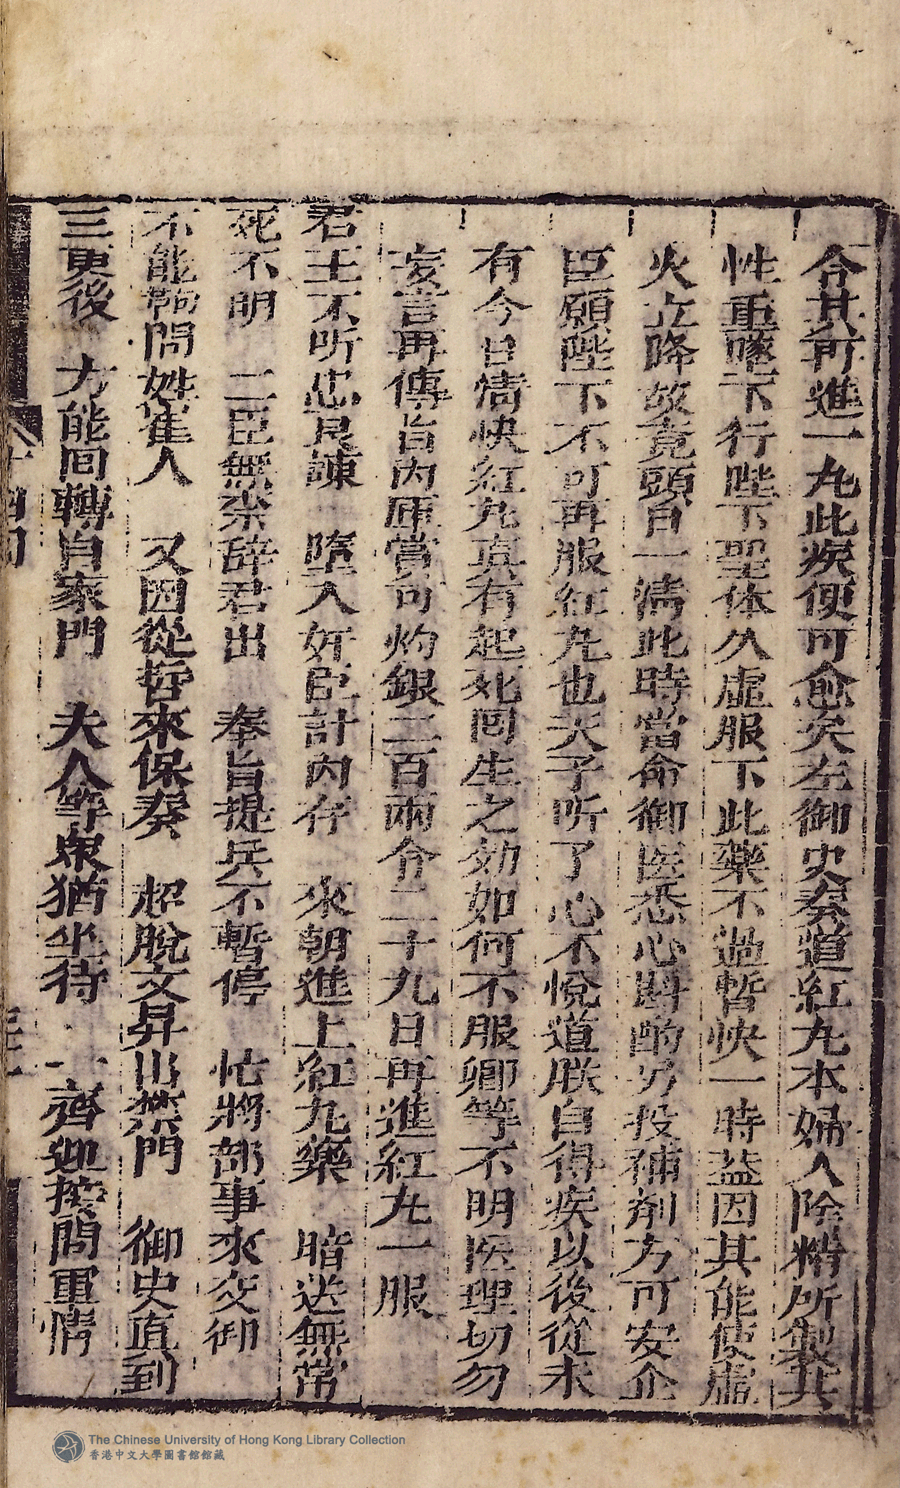 令其可進一丸此疾便可愈矣左御史奏道紅丸本婦人陰精所製其
性重墜下行陛下聖体久虛服下此藥不過暫快一時益因其能使虛
火立降故竟頭目一清此時當命御医悉心斟酌另投補剤方可安企
臣願陛下不可再服紅丸也天子听了心不悅道朕自得疾以後從未
有今日清快紅丸真有起死回生之効如何不服卿等不明医理切勿
妄言再傳旨內庫當可灼銀二百兩令二十九日再進紅丸一服
君王不听忠良諫　墮入奸臣計內存　來朝進上紅丸藥　暗送無常
死不明　二臣無奈辞君出　奉旨提兵不暫停　忙將部事來交御
不能鞫問姓崔人　又因從哲來保奏　超脫文昇出禁門　御史直到
三更後　方能回轉自家門　夫人等衆猶坐待　一齊迎接問軍情
十四回
The Chinese University of Hong Kong Library Collection
香港中文大學圖書館館藏